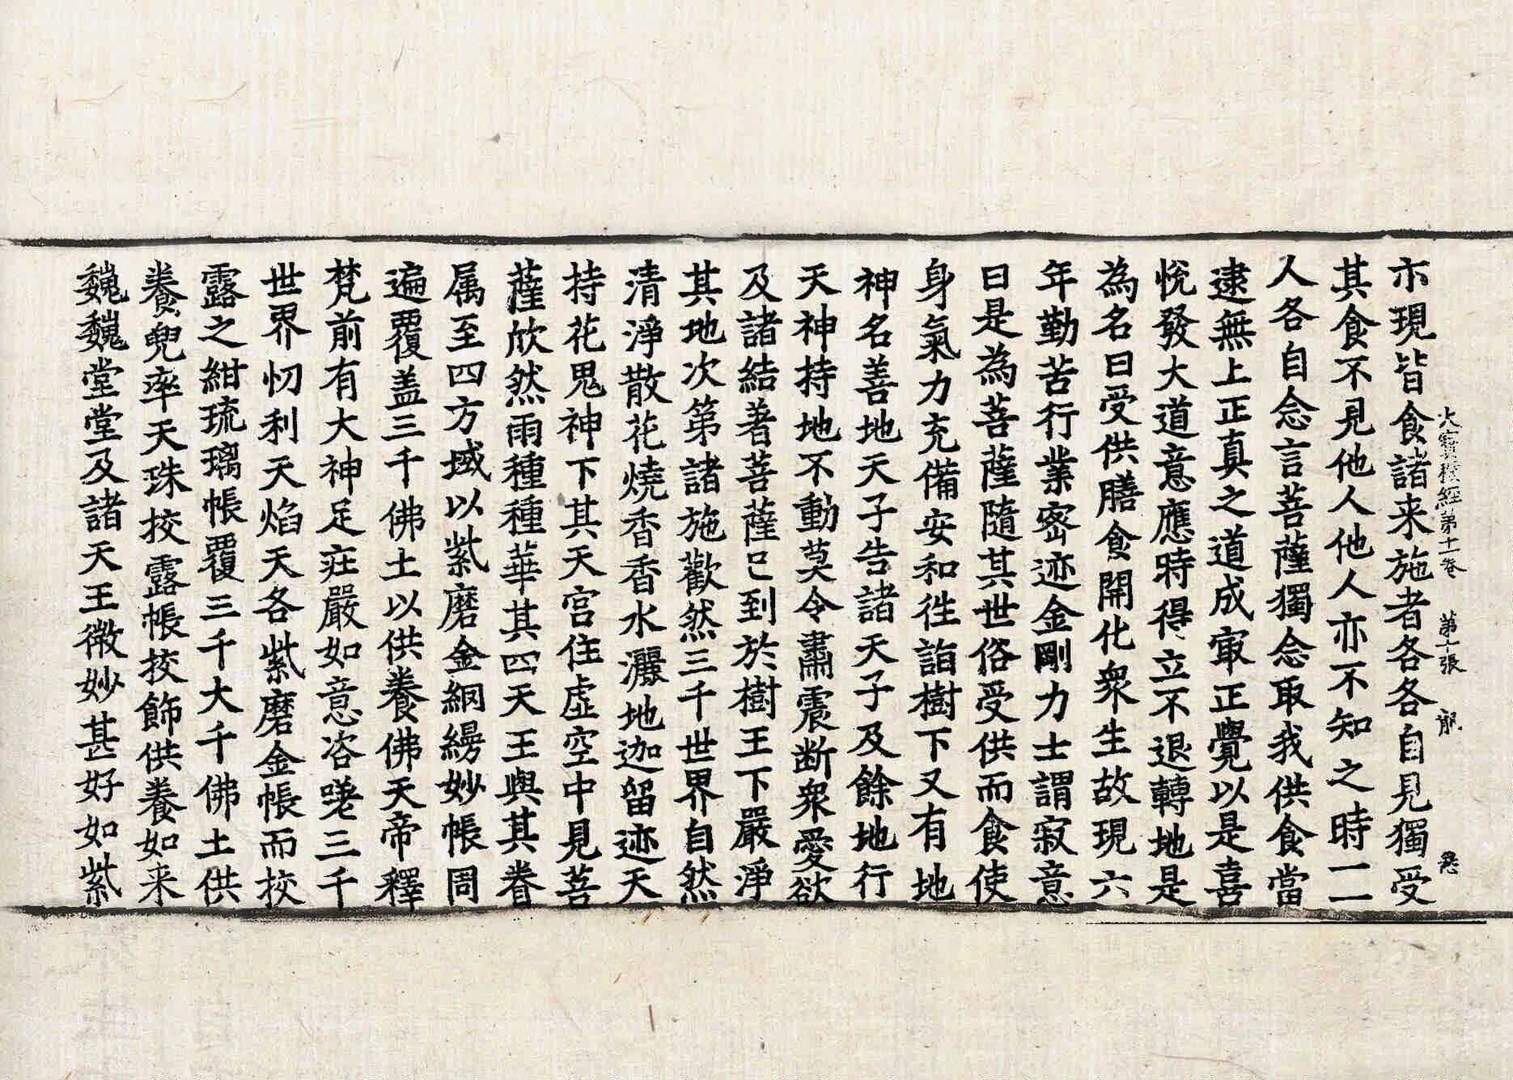 亦現皆食諸来施者各各自見獨受
大寶積經第十一卷 第十張 龍
其食不見他人他人亦不知之時一一
人各自念言菩薩獨念取我供食當
逮無上正真之道成㝡正覺以是喜
悅發大道意應時得立不退轉地是
為名曰受供膳食開化衆生故現六
年勤苦行業密迹金剛力士謂寂意
曰是為菩薩隨其世俗受供而食使
身氣力充備安和往詣樹下又有地
神名善地天子告諸天子及餘地行
天神持地不動莫令肅震断衆愛欲
及諸結著菩薩已到於樹王下嚴淨
其地次第諸施歡然三千世界自然
清淨散花燒香香水灑地迦留迹天
持花鬼神下其天宮住虛空中見菩
薩欣然雨種種華其四天王與其眷
属至四方域以紫磨金網縵妙帳周
遍覆盖三千佛土以供養佛天帝釋
梵前有大神足莊嚴如意咨嗟三千
世界忉利天焰天各紫磨金帳而挍
露之紺琉璃帳覆三千大千佛土供
養兜率天珠挍露帳挍飾供養如来
巍巍堂堂及諸天王微妙甚好如紫